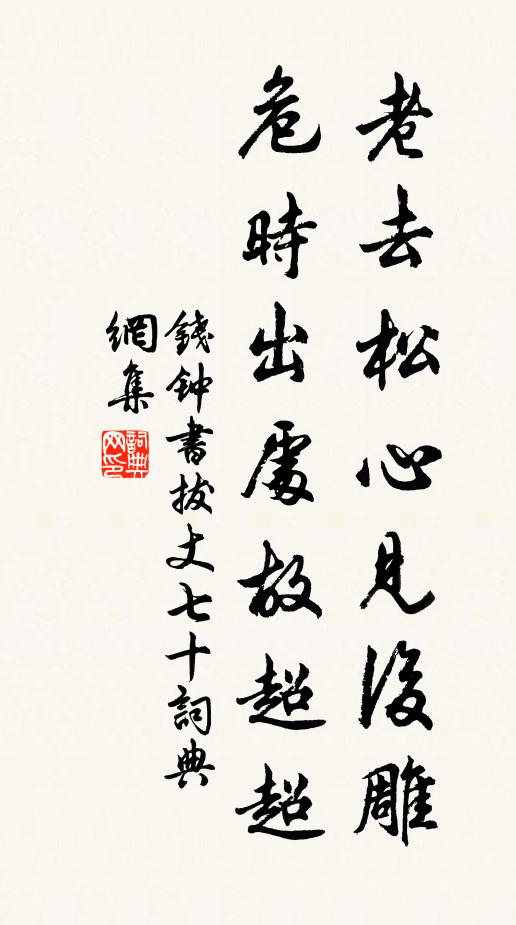 老去松心見後雕
危時出處故超超
錢鈡書拔丈七十詞典
網集
詞典
网印